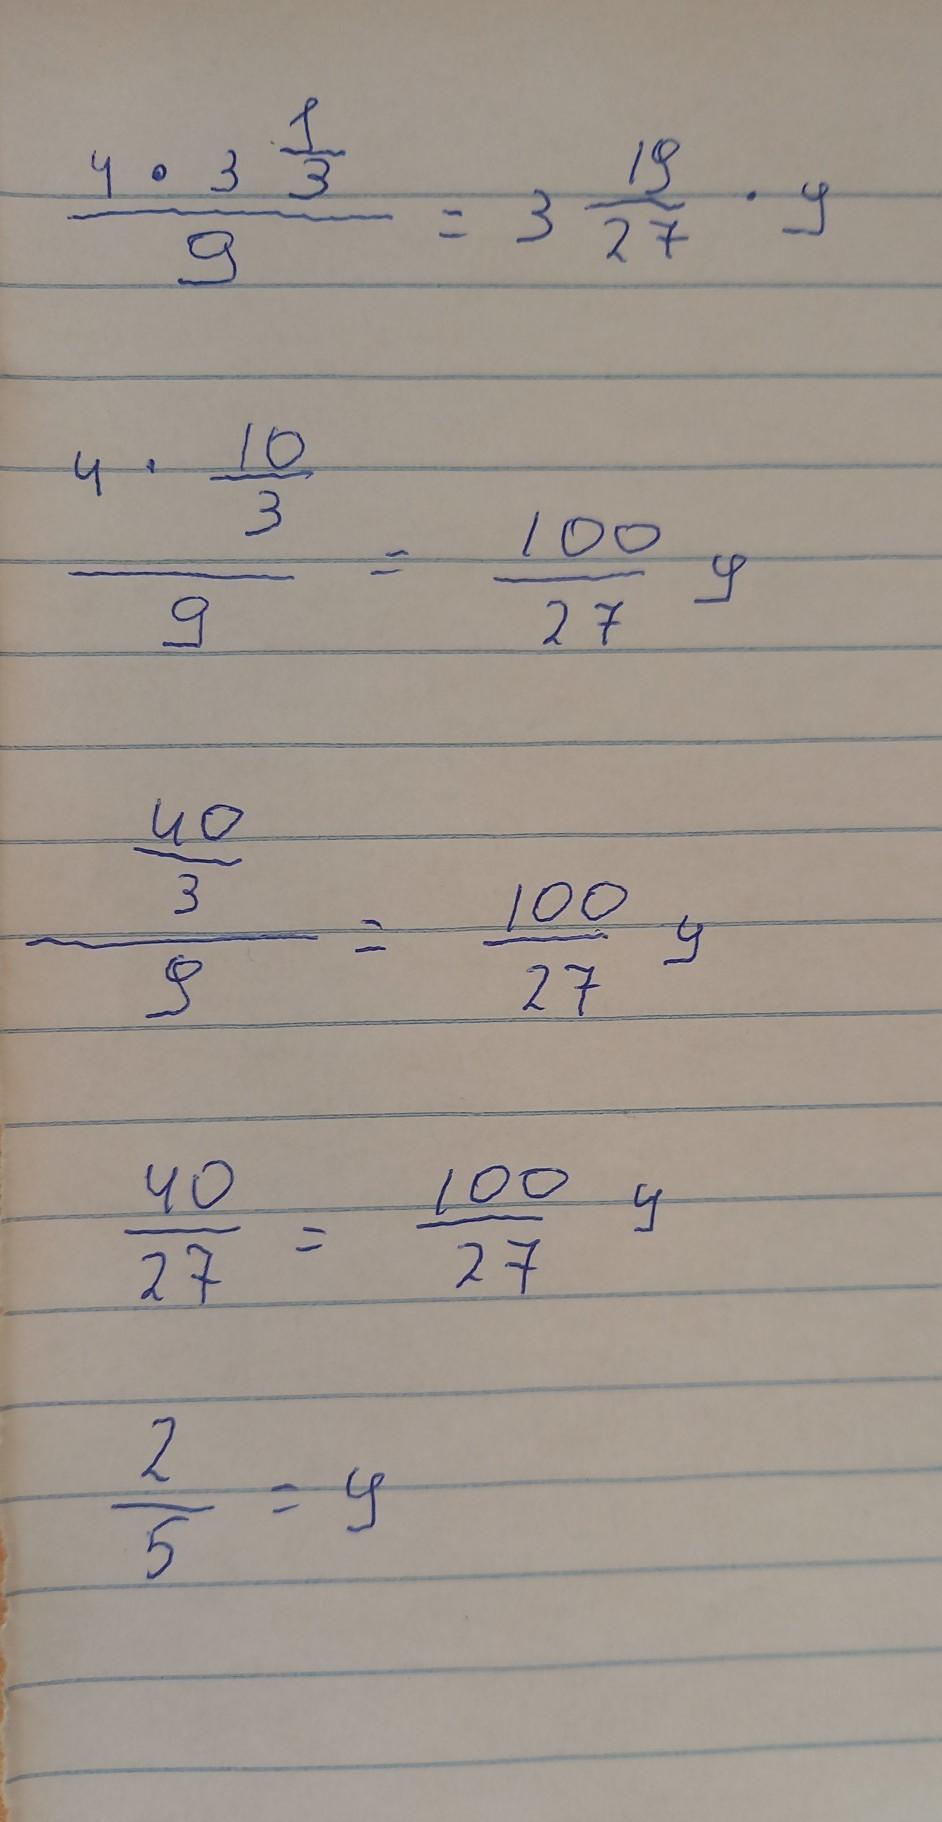 4 · 3 1/3 / 9 = 3 19/27 · y
4 · 10/3 / 9 = 100/27 y
40/3 / 9 = 100/27 y
40/27 = 100/27 y
2/5 = y